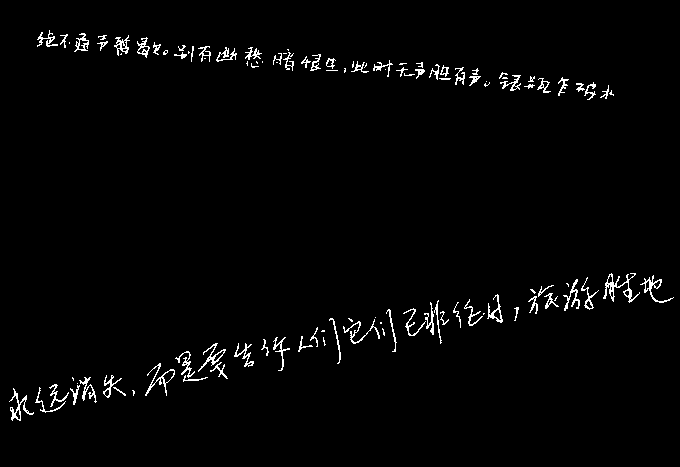 绝不通声暂歇。别有幽愁暗恨生,此时无声胜有声。银瓶乍破水
永远消失,而是要告诉人们它们已非往日,旅游胜地